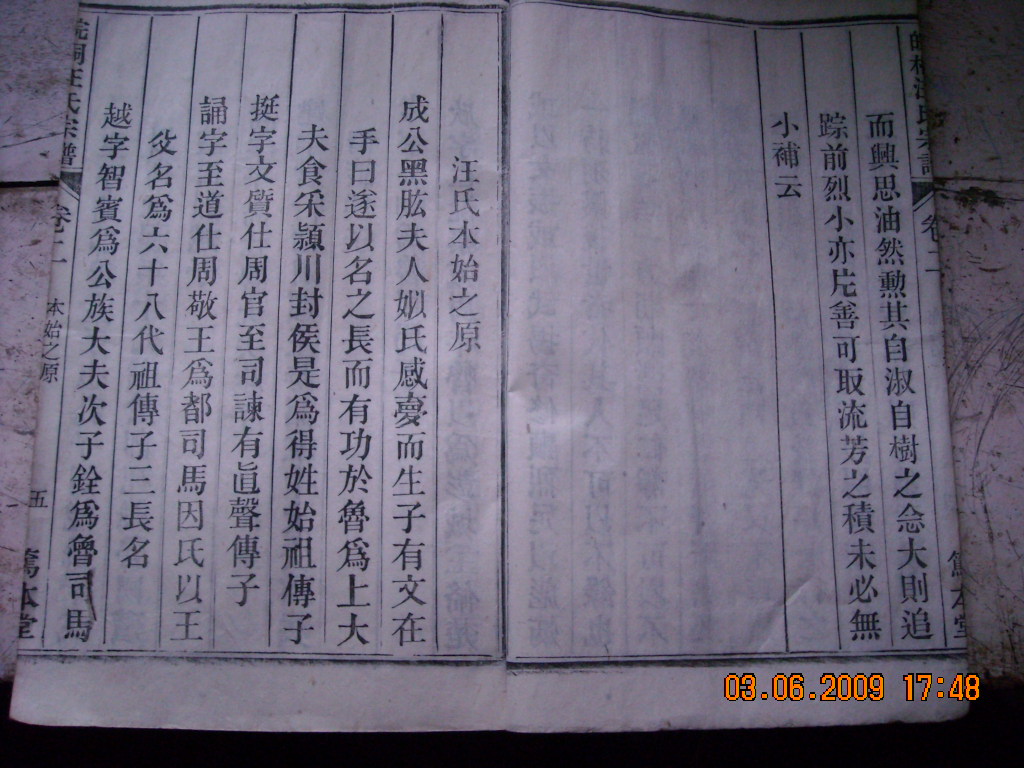 而興思油然勲其自淑自樹之念大則追
踪前烈小亦片善可取流芳之積未必無
小補云
汪氏本始之原
成公黑肱夫人姒氏感夢而生子有文在
手曰遂以名之長而有功於魯為上大
夫食采潁川封侯是為得姓始祖傳子
挺字文質仕周官至司諫有眞聲傳子
誦字至道仕周敬王為都司馬因氏以王
父名為六十八代祖傳子三長名
越字智賓為公族大夫次子銓為魯司馬
皖桐汪氏宗譜
卷二
本始之原
五
篤本堂
皖桐汪氏宗譜
卷二
篤本堂
03.06.2009 17:48